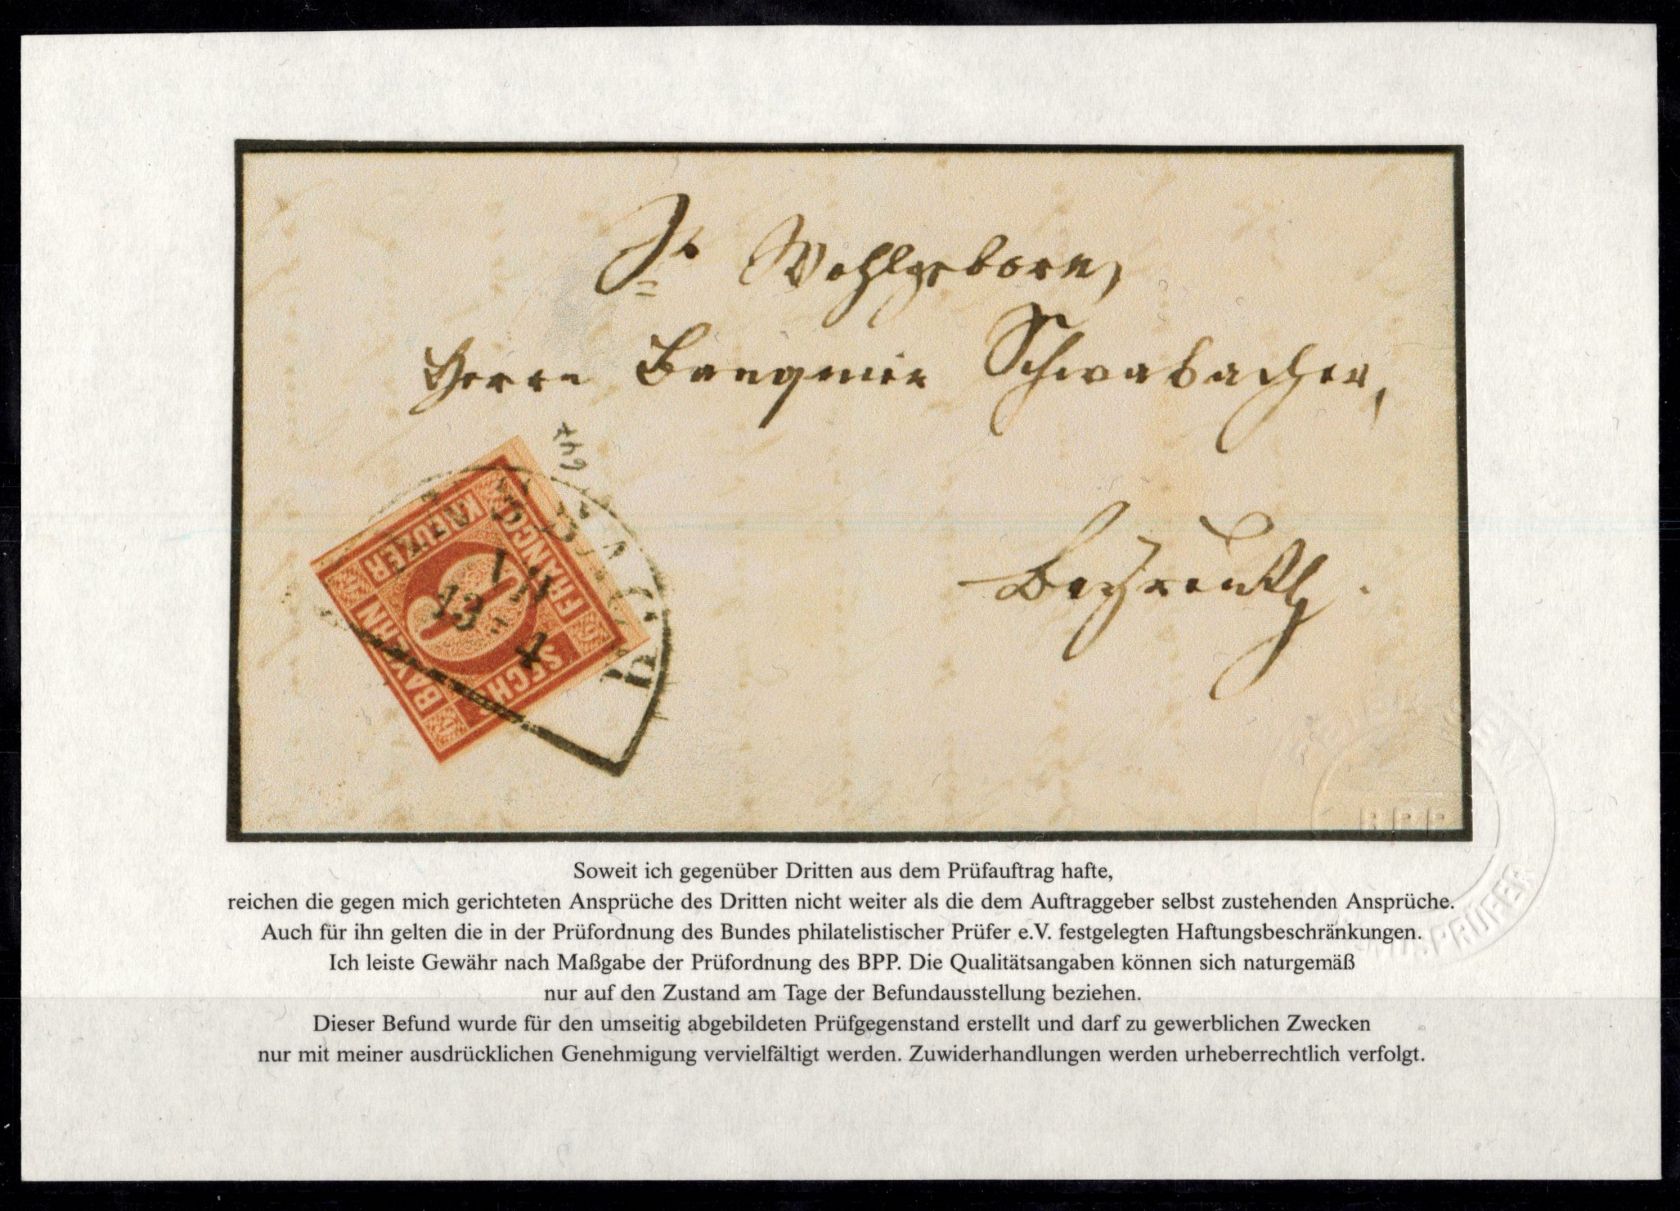 Sr Wohlgeboren,
Herrn Banquier Schwabacher,
Bayreuth.
BAYERN
KREUZER
FRANCO
SECHS
6
VII
13 4
Soweit ich gegenüber Dritten aus dem Prüfauftrag hafte,
reichen die gegen mich gerichteten Ansprüche des Dritten nicht weiter als die dem Auftraggeber selbst zustehenden Ansprüche.
Auch für ihn gelten die in der Prüfordnung des Bundes philatelistischer Prüfer e.V. festgelegten Haftungsbeschränkungen.
Ich leiste Gewähr nach Maßgabe der Prüfordnung des BPP. Die Qualitätsangaben können sich naturgemäß
nur auf den Zustand am Tage der Befundausstellung beziehen.
Dieser Befund wurde für den umseitig abgebildeten Prüfgegenstand erstellt und darf zu gewerblichen Zwecken
nur mit meiner ausdrücklichen Genehmigung vervielfältigt werden. Zuwiderhandlungen werden urheberrechtlich verfolgt.
BPP